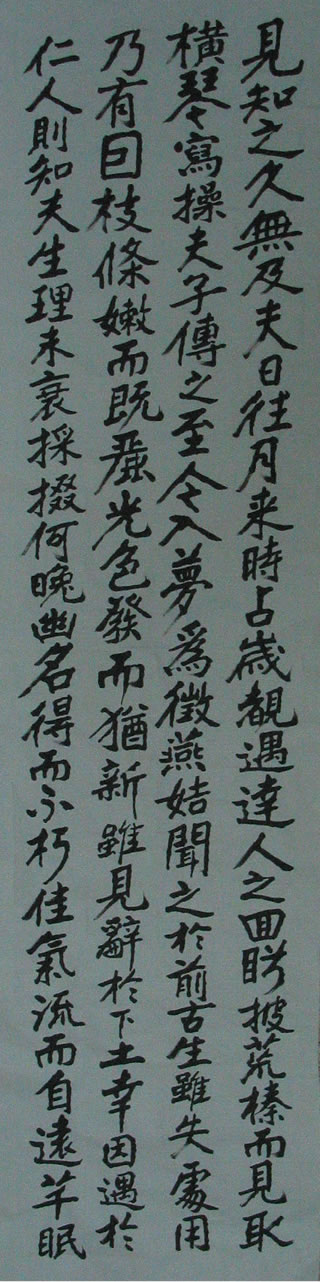 見知之久無及夫日往月来時占歳覩遇達人之回眄披荒榛而見取
横琴寫操夫子傳之至今入夢為徴燕姞聞之於前古生雖失處用
乃有因枝條嫩而既叢光色發而猶新雖見辭於下土幸因遇於
仁人則知夫生理未衰採掇何晚幽名得而不朽佳氣流而自遠芊眠